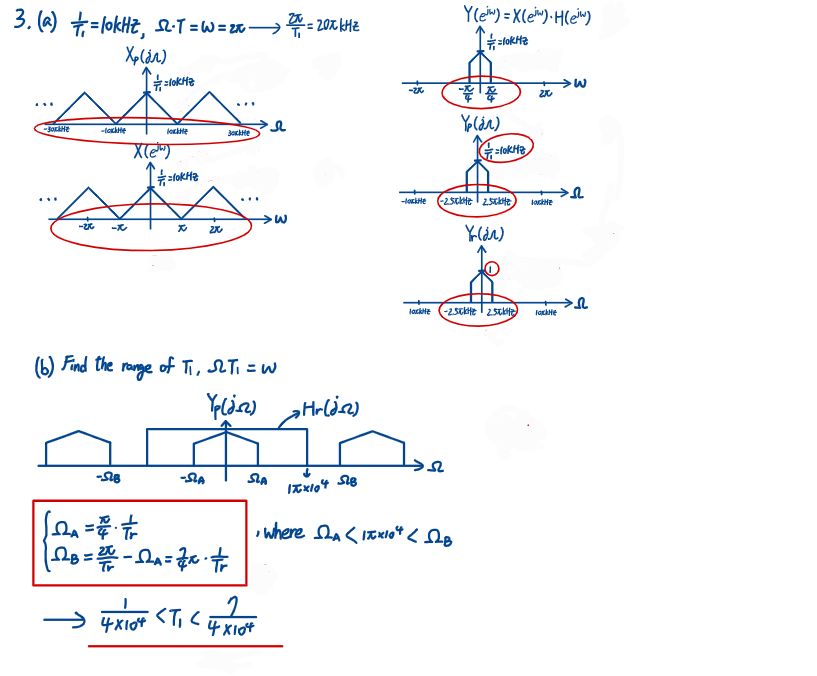 3. (a) 1/T₁ = 10kHz, Ω·T = w = 2π → 2π/T₁ = 20π kHz
Xp(jΩ)
1/T₁ = 10kHz
... ...
-30πkHz -10πkHz 10πkHz 30πkHz Ω
X(e^jw)
1/T₁ = 10kHz
... ...
-2π -π π 2π w
Y(e^jw) = X(e^jw)·H(e^jw)
1/T₁ = 10kHz
-2π -π/4 π/4 2π w
Yp(jΩ)
1/T₁ = 10kHz
-10πkHz -2.5πkHz 2.5πkHz 10πkHz Ω
Yr(jΩ)
1
10πkHz -2.5πkHz 2.5πkHz 10πkHz Ω
(b) Find the range of T₁, ΩT₁ = w
Yp(jΩ) Hr(jΩ)
-ΩB -ΩA ΩA 1π×10⁴ ΩB Ω
ΩA = π/4 · 1/Tr
ΩB = 2π/Tr - ΩA = 7/4 π · 1/Tr
, where ΩA < 1π×10⁴ < ΩB
→ 1/(4×10⁴) < T₁ < 7/(4×10⁴)